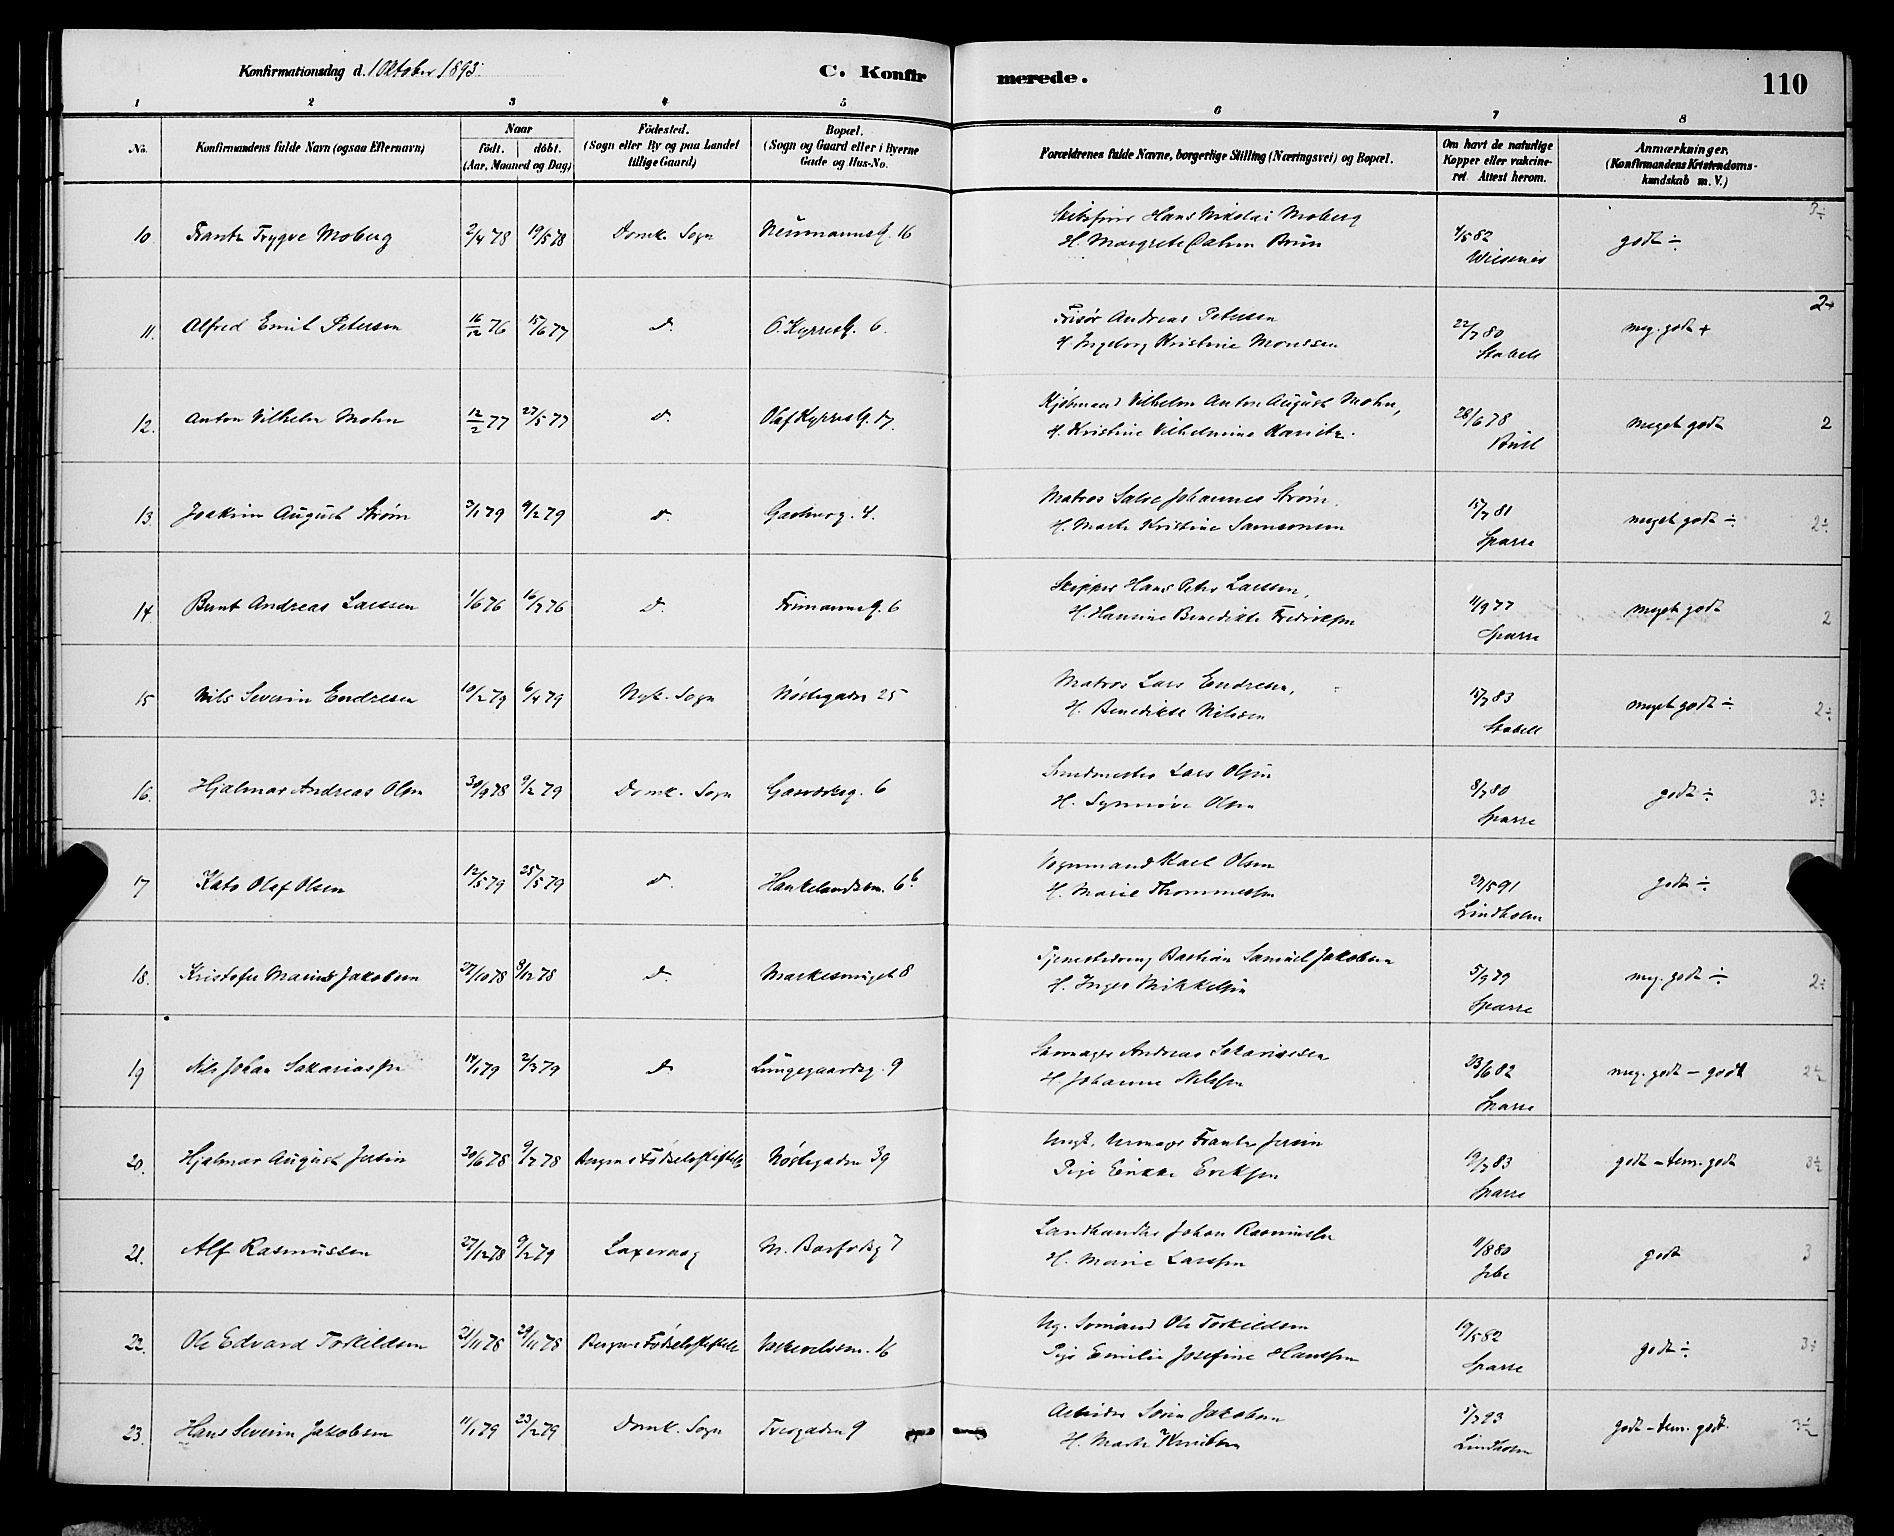 Konfirmationsdag d. 1 Oktober 1893.
C. Konfirmerede.
110
1 2 3 4 5 6 7 8
No.
Konfirmandens fulde Navn (ogsaa Efternavn)
Naar
Födt. döbt.
(Aar, Maaned og Dag)
Födested.
(Sogn eller By og paa Landet
tillige Gaard)
Bopæl.
(Sogn og Gaard eller i Byerne
Gade og Hus-No.
Forældrenes fulde Navne, borgerlige Stilling (Næringsvei) og Bopæl.
Om havt de naturlige
Kopper eller vakcine-
ret. Attest herom.
Anmærkninger.
(Konfirmandens Kristendoms-
kundskab m. V.)
10 Frantz Trygve Moberg 2/4 78 19/5 78 Domk. Sogn Neumannsg. 16 Skibsfører Hans Nikolai Moberg 4/5 82 godt ÷ 3÷
H. Margrete Dahm Brun
11. Alfred Emil Petersen 16/12 76 15/6 77 d. O. Kyrresg. 6. Frisør Andreas Petersen 22/7 80 meg. godt + 2+
H. Ingeborg Kristine Monssen Stabell
12. Anton Vilhelm Mohn 12/2 77 27/5 77 d. Olaf Kyrresg. 17. Kjøbmand Vilhelm Anton August Mohn, 28/6 78 meget godt 2
H. Kristine Vilhelmine
13. Joakim August Strøm 3/1 79 9/2 79 d. Gasverg. 4. Matros Johannes Strøm, 15/7 81 meget godt ÷ 2÷
H. Marte Kristine Samsonsen Sparre
14 Bernt Andreas Larssen 1/6 76 16/7 76 d. Frimannsg. 6 Skipper Hans Peter Larssen, 11/9 77 meget godt 2
H. Hansine Benedikte Fredriksen Sparre
15 Nils Severin Endresen 10/2 79 6/4 79 Nyk. Sogn Nøstegaden 25 Matros Lars Endresen, 15/7 83 meget godt ÷ 2÷
H. Benedikte Nilssen Stabell
16. Hjalmar Andreas Olsen 30/9 78 9/2 79 Domk. Sogn Gasverksg. 6 Smedmester Lars Olsen 8/7 80 godt ÷ 3÷
H. Synnøve Olsen Sparre
17 Kato Olaf Olsen 12/5 79 25/5 79 d. Haukelandsv. 6b Vognmand Karl Olsen 27/5 91 godt ÷
H. Marie Thommesen Lindholm
18. Kristofer Marius Jakobsen 27/10 78 8/12 78 d. Markesmuget 8 Tjenestedreng Bastian Samuel Jakobsen 5/9 79 meg. godt ÷ 2÷
H. Inger Mikkelsen Sparre
19 Nils Johan Sakariassen 14/1 79 2/3 79 d. Lungegaardsg. 9 Skomager Andreas Sakariassen 23/6 82 meg. godt – godt 2½
H. Johanne Nilssen Sparre
20. Hjalmar August Jersin 20/6 78 9/7 78 Bergens Fødselsstiftelse Nøstegaden 39 Ungk. Urmager Frantz Jersin 19/7 83 godt – tem. godt 3½
Pige Eriksen Sparre
21. Alf Rasmussen 27/12 78 9/2 79 Laxevaag M. Basfordsg 7 Landhandler Johan Rasmussen 11/8 80 godt 3
H. Marie Larssen
22. Ole Edvard Torkildsen 21/11 78 29/11 78 Bergens Fødselsstiftelse 16 Ug. Sømand Ole Torkildsen 19/5 82 godt ÷ 3÷
Pige Emilie Josefine Hanssen Sparre
23. Hans Severin Jakobsen 11/1 79 23/2 79 Domk. Sogn Tvergaden 9 Arbeider Søren Jakobsen 5/7 93 godt – tem. godt. 3½
H. Marte Knudsen Lindholm